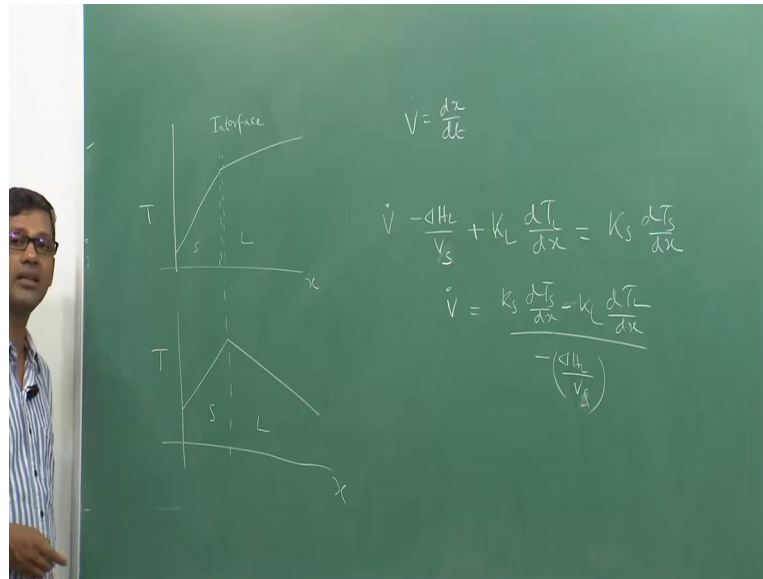 Interface
T
S L
x
T
S L
x
V̇ = dx/dt
V̇ -ΔH_L/V_S + K_L dT_L/dx = K_S dT_S/dx
V̇ = K_S dT_S/dx - K_L dT_L/dx
-(ΔH_L/V_S)